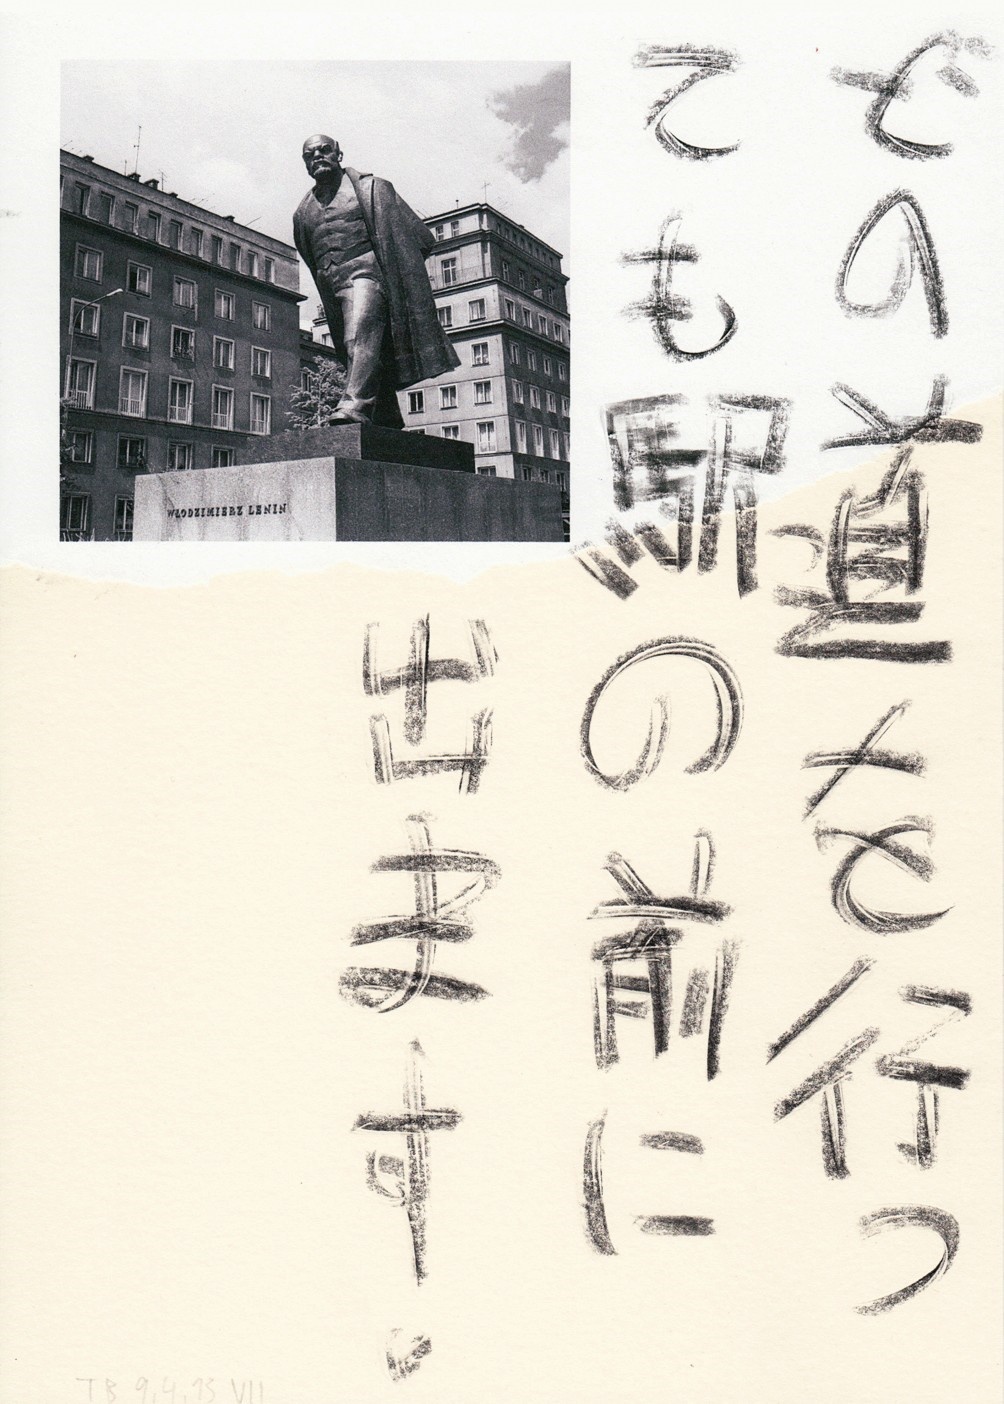 どの道を行っ
ても駅の前に
出ます。
WŁODZIMIERZ LENIN
TB VII